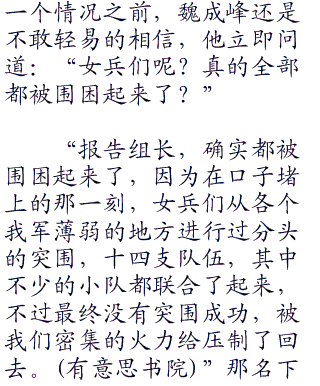 一个情况之前，魏成峰还是
不敢轻易的相信，他立即问
道：“女兵们呢？真的全部
都被围困起来了？”
“报告组长，确实都被
围困起来了，因为在口子堵
上的那一刻，女兵们从各个
我军薄弱的地方进行过分头
的突围，十四支队伍，其中
不少的小队都联合了起来，
不过最终没有突围成功，被
我们密集的火力给压制了回
去。(有意思书院)”那名下